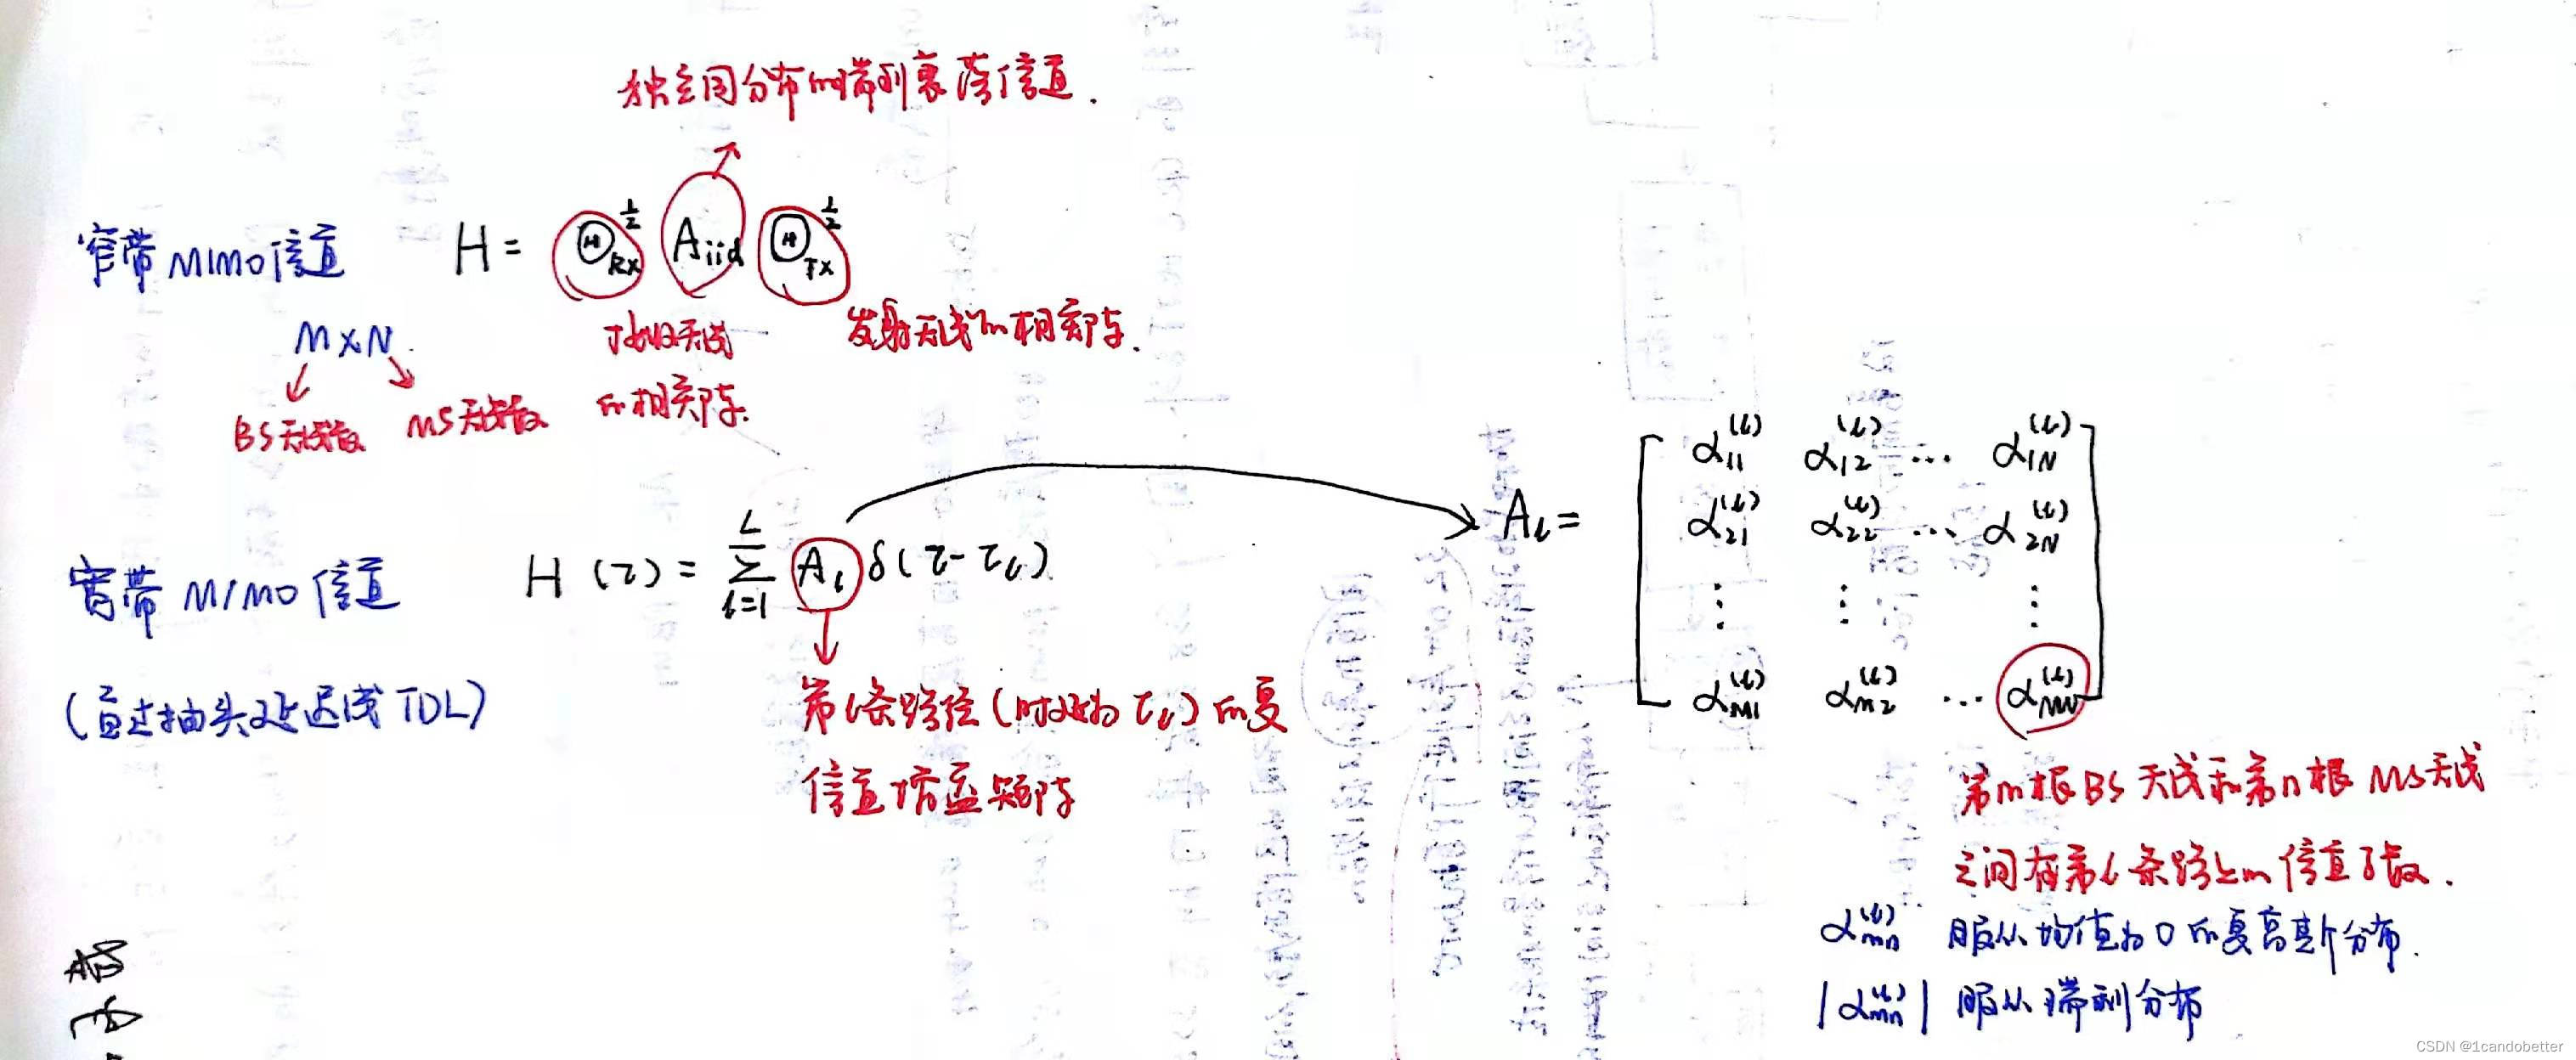 独立同分布的瑞利衰落信道.
窄带MIMO信道 H = Θ_RX^{1/2} A_iid Θ_TX^{1/2}
M×N
接收天线的相关阵.
发射天线的相关阵.
BS天线数 MS天线数
宽带MIMO信道 H(τ) = Σ_{l=1}^{L} A_l δ(τ-τ_l)
(通过抽头延迟线TDL)
第l条路径(时延为τ_l)的复
信道增益矩阵
A_l =
α_11^(l) α_12^(l) … α_1N^(l)
α_21^(l) α_22^(l) … α_2N^(l)
⋮ ⋮ ⋮
α_M1^(l) α_M2^(l) … α_MN^(l)
第m根BS天线和第n根MS天线
之间在第l条路上的信道系数.
α_mn^(l) 服从均值为0的复高斯分布.
|α_mn^(l)| 服从瑞利分布
CSDN @1candobetter